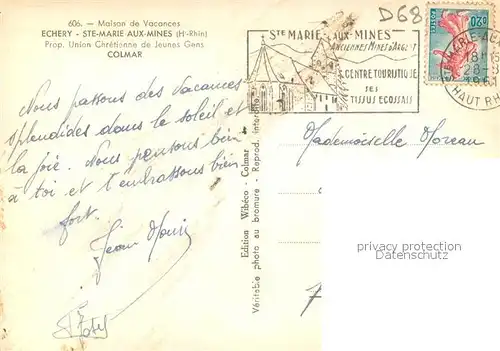 606. — Maison de Vacances
ECHERY - STE-MARIE AUX-MINES (H-Rhin)
Prop. Union Chrétienne de Jeunes Gens
COLMAR
D68
STE MARIE AUX-MINES
ANCIENNES MINES D'ARGENT
CENTRE TOURISTIQUE
SES
TISSUS ECOSSAIS
0,20
18-
28-
1961
HAUT R
Nous passons des vacances
splendides dans le soleil et
la joie. Nous pensons bien
à toi et t'embrassons bien
fort.
Jean Marie
Mademoiselle Moreau
Edition Wibéco - Colmar
Véritable photo au bromure - Reprod. interdite
privacy protection
Datenschutz
7